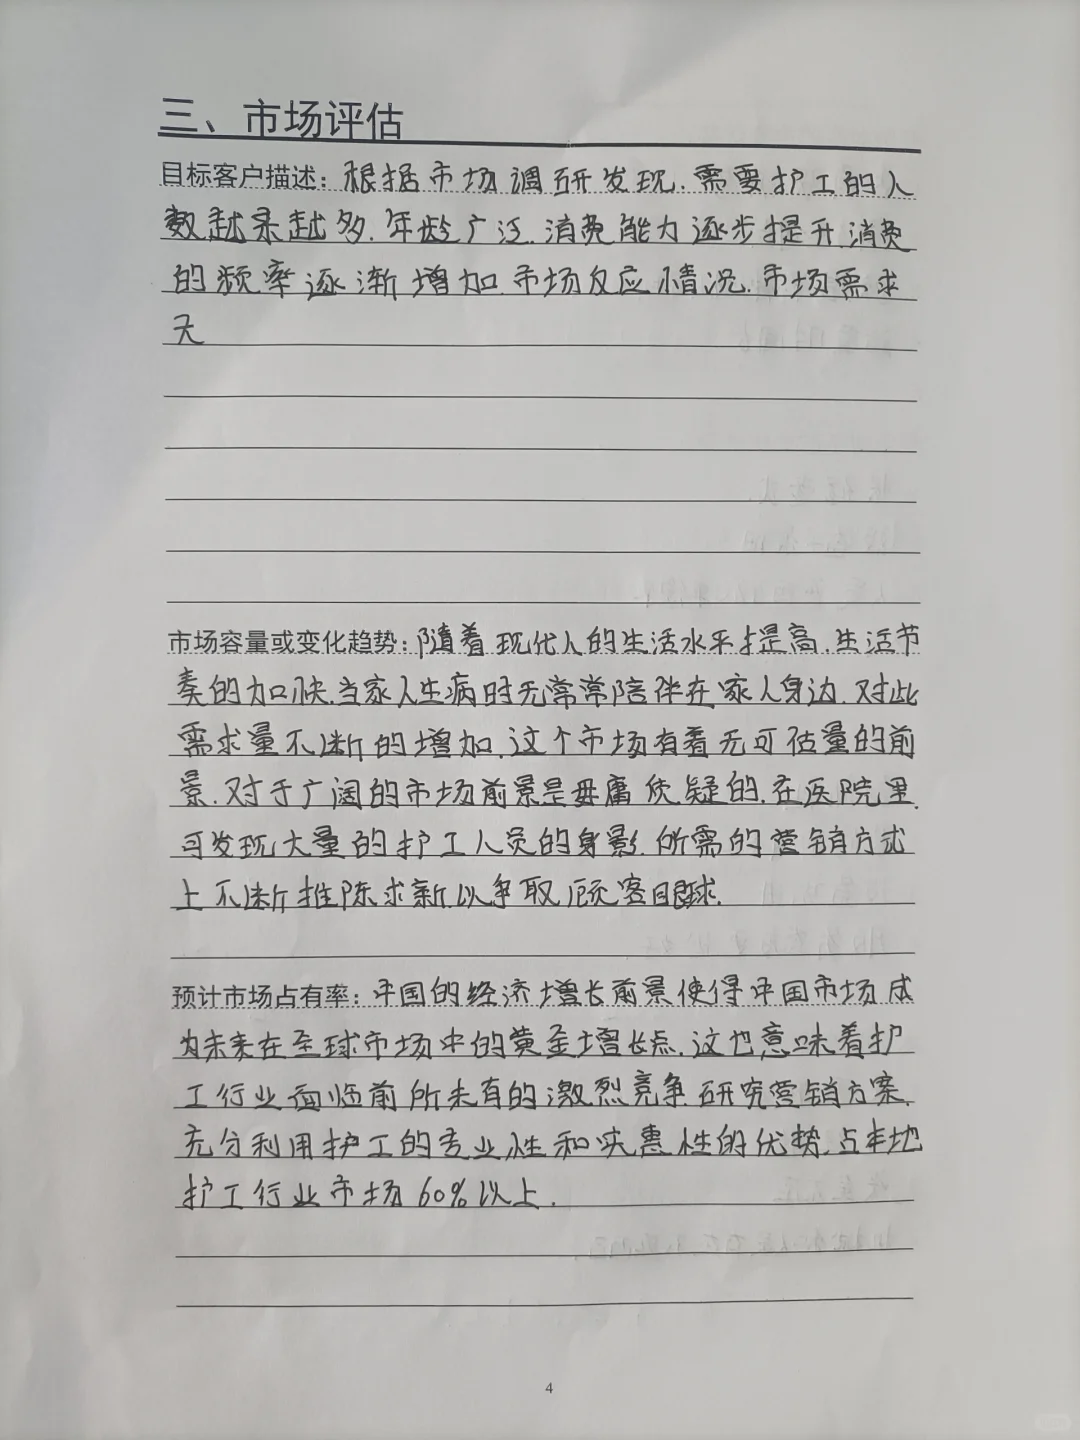 三、市场评估
目标客户描述：根据市场调研发现，需要护工的人
数越来越多，年龄广泛，消费能力逐步提升，消费
的频率逐渐增加，市场反应情况，市场需求
大
市场容量或变化趋势：随着现代人的生活水平提高，生活节
奏的加快，当家人生病时无常常陪伴在家人身边，对此
需求量不断的增加，这个市场有着无可估量的前
景，对于广阔的市场前景是毋庸质疑的，在医院里，
可发现大量的护工人员的身影，所需的营销方式
上不断推陈求新，以争取顾客眼球．
预计市场占有率：中国的经济增长前景使得中国市场成
为未来在全球市场中的黄金增长点，这也意味着护
工行业面临前所未有的激烈竞争，研究营销方案，
充分利用护工的专业性和实惠性的优势，占本地
护工行业市场60%以上．
4